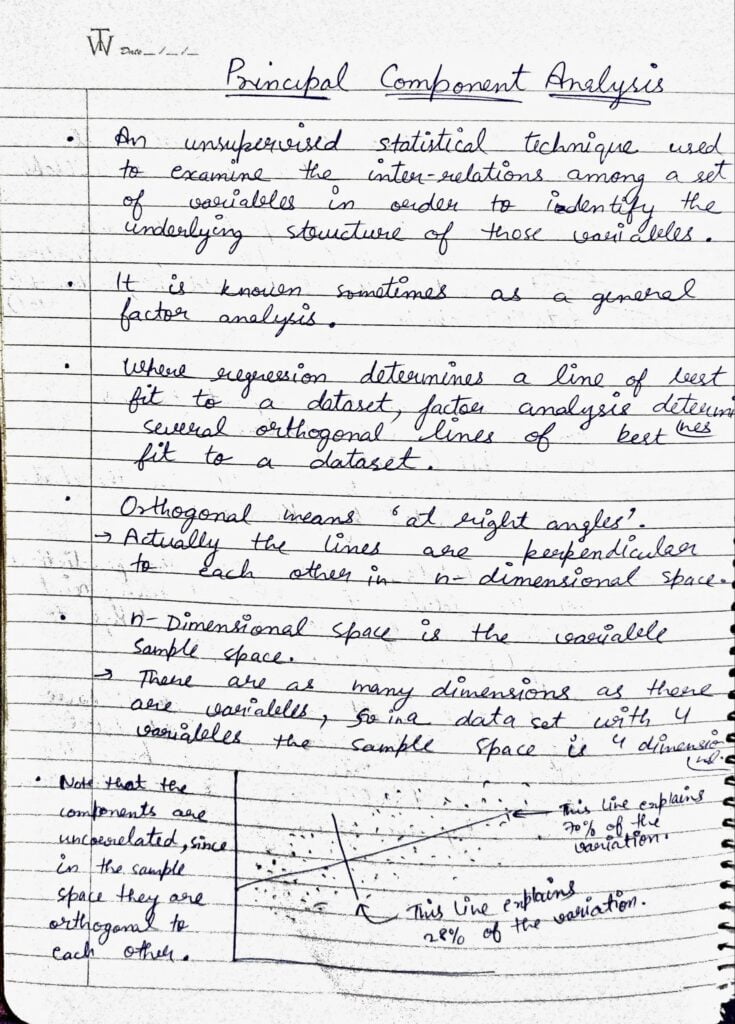 TW Date _ / _ / _
Principal Component Analysis
• An unsupervised statistical technique used
to examine the inter-relations among a set
of variables in order to identify the
underlying structure of those variables.
• It is known sometimes as a general
factor analysis.
• Where regression determines a line of best
fit to a dataset, factor analysis determi
nes
several orthogonal lines of best
fit to a dataset.
• Orthogonal means 'at right angles'.
→ Actually the lines are perpendicular
to each other in n-dimensional space.
• n-Dimensional space is the variable
sample space.
→ There are as many dimensions as there
are variables, so in a data set with 4
variables the sample space is 4 dimensio
nal.
• Note that the
components are
uncorrelated, since
in the sample
space they are
orthogonal to
each other.
← This line explains
70% of the
variation.
This line explains
28% of the variation.